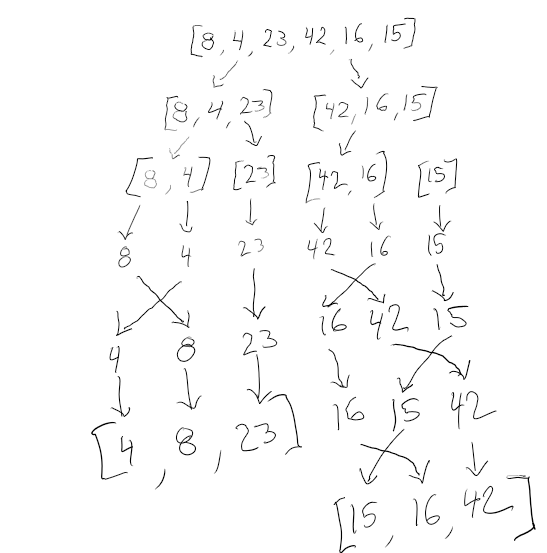 [8, 4, 23, 42, 16, 15]
[8, 4, 23] [42, 16, 15]
[8, 4] [23] [42, 16] [15]
8 4 23 42 16 15
16 42 15
4 8 23
16 15 42
[4, 8, 23]
[15, 16, 42]